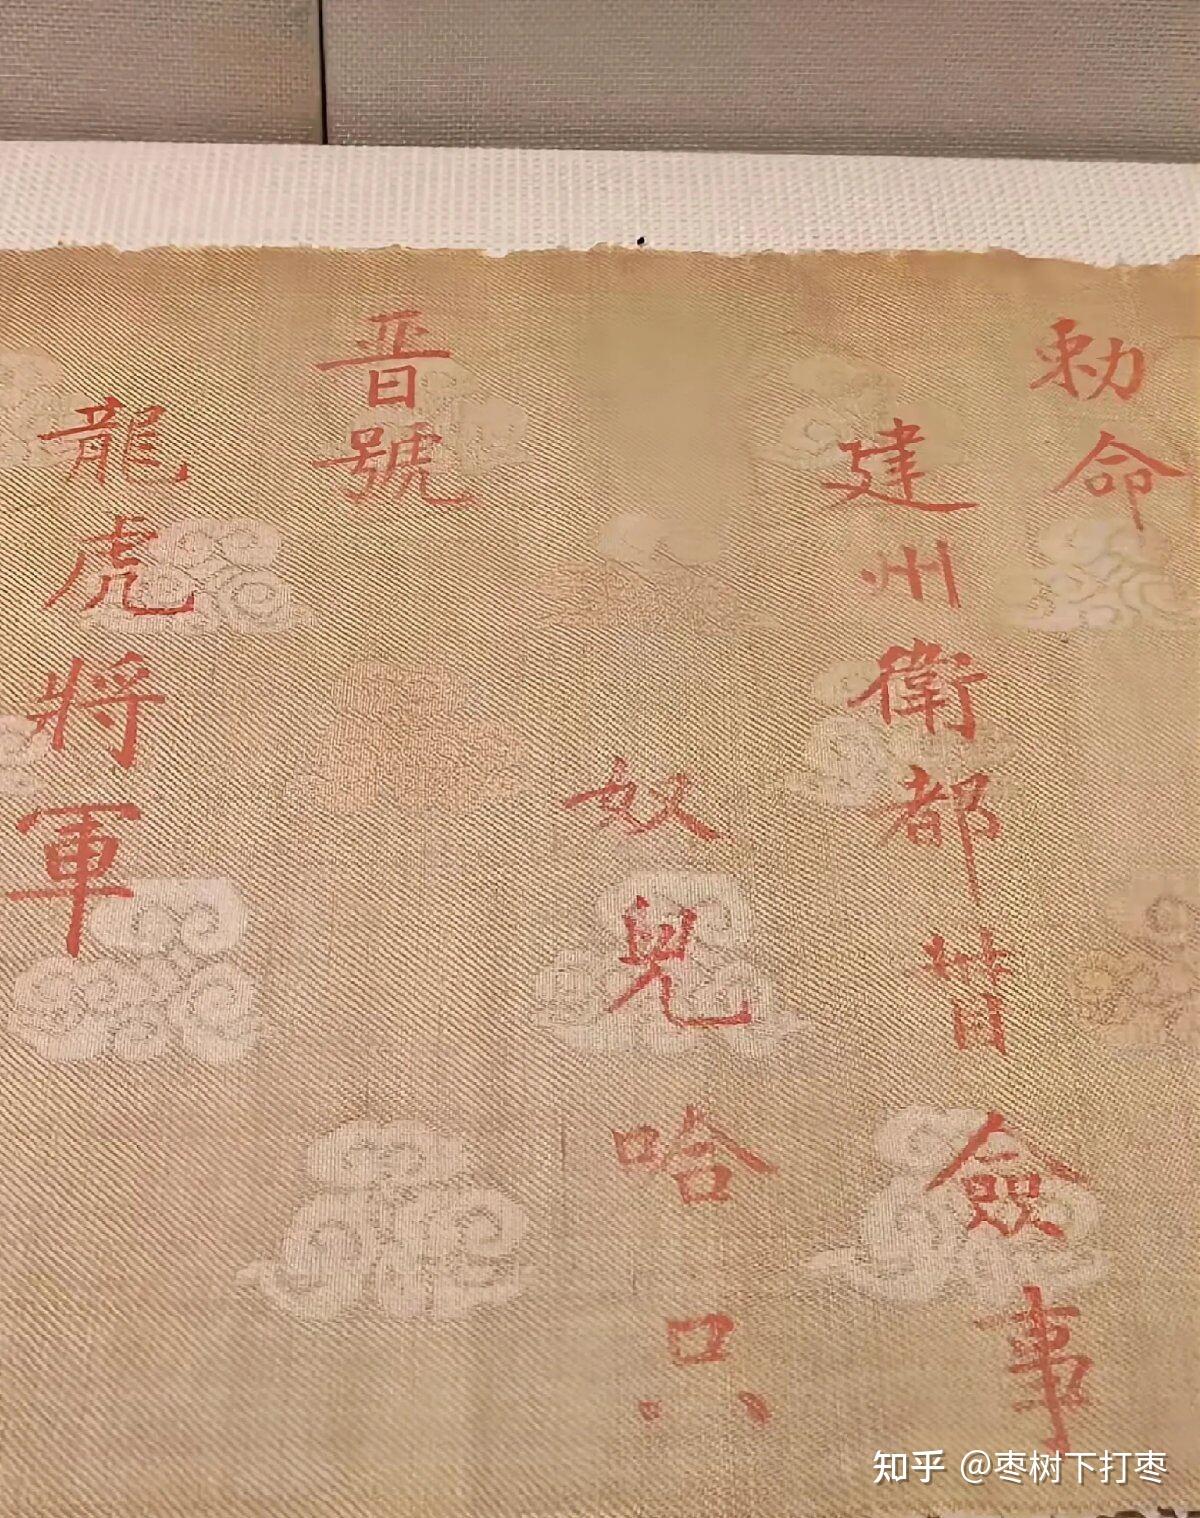 勅命
建州衛都督僉事
奴兒哈只
晋號
龍虎將軍
知乎 @枣树下打枣